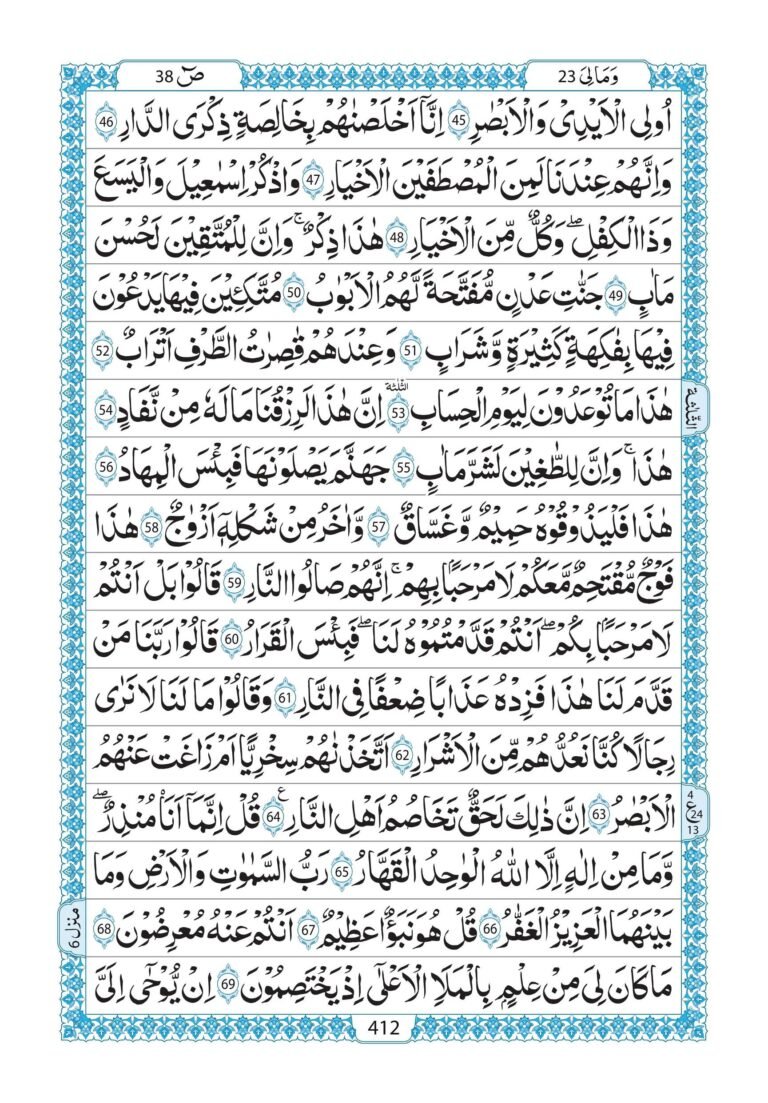 وَمَالِیَ 23
صٓ 38
اُولِی الْاَیْدِیْ وَالْاَبْصٰرِ 45 اِنَّاۤ اَخْلَصْنٰهُمْ بِخَالِصَةٍ ذِكْرَی الدَّارِ 46
وَاِنَّهُمْ عِنْدَنَا لَمِنَ الْمُصْطَفَیْنَ الْاَخْیَارِ 47 وَاذْكُرْ اِسْمٰعِیْلَ وَالْیَسَعَ
وَذَا الْكِفْلِ ؕ وَكُلٌّ مِّنَ الْاَخْیَارِ 48 هٰذَا ذِكْرٌ ؕ وَاِنَّ لِلْمُتَّقِیْنَ لَحُسْنَ
مَاٰبٍ 49 جَنّٰتِ عَدْنٍ مُّفَتَّحَةً لَّهُمُ الْاَبْوَابُ 50 مُتَّكِـِٕیْنَ فِیْهَا یَدْعُوْنَ
فِیْهَا بِفَاكِهَةٍ كَثِیْرَةٍ وَّشَرَابٍ 51 وَعِنْدَهُمْ قٰصِرٰتُ الطَّرْفِ اَتْرَابٌ 52
هٰذَا مَا تُوْعَدُوْنَ لِیَوْمِ الْحِسَابِ 53 الثلٰثة اِنَّ هٰذَا لَرِزْقُنَا مَا لَهٗ مِنْ نَّفَادٍ 54
الثلٰثة
هٰذَا ؕ وَاِنَّ لِلطّٰغِیْنَ لَشَرَّ مَاٰبٍ 55 جَهَنَّمَ یَصْلَوْنَهَا فَبِئْسَ الْمِهَادُ 56
هٰذَا فَلْیَذُوْقُوْهُ حَمِیْمٌ وَّغَسَّاقٌ 57 وَّاٰخَرُ مِنْ شَكْلِهٖۤ اَزْوَاجٌ 58 هٰذَا
فَوْجٌ مُّقْتَحِمٌ مَّعَكُمْ لَا مَرْحَبًۢا بِهِمْ ؕ اِنَّهُمْ صَالُوا النَّارِ 59 قَالُوْا بَلْ اَنْتُمْ
لَا مَرْحَبًۢا بِكُمْ ؕ اَنْتُمْ قَدَّمْتُمُوْهُ لَنَا ۚ فَبِئْسَ الْقَرَارُ 60 قَالُوْا رَبَّنَا مَنْ
قَدَّمَ لَنَا هٰذَا فَزِدْهُ عَذَابًا ضِعْفًا فِی النَّارِ 61 وَقَالُوْا مَا لَنَا لَا نَرٰی
رِجَالًا كُنَّا نَعُدُّهُمْ مِّنَ الْاَشْرَارِ 62 اَتَّخَذْنٰهُمْ سِخْرِیًّا اَمْ زَاغَتْ عَنْهُمُ
الْاَبْصٰرُ 63 اِنَّ ذٰلِكَ لَحَقٌّ تَخَاصُمُ اَهْلِ النَّارِ ع 64 قُلْ اِنَّمَاۤ اَنَا مُنْذِرٌ ۖ
4
ع 24
13
وَّمَا مِنْ اِلٰهٍ اِلَّا اللّٰهُ الْوَاحِدُ الْقَهَّارُ 65 رَبُّ السَّمٰوٰتِ وَالْاَرْضِ وَمَا
بَیْنَهُمَا الْعَزِیْزُ الْغَفّٰرُ 66 قُلْ هُوَ نَبَؤٌا عَظِیْمٌ 67 اَنْتُمْ عَنْهُ مُعْرِضُوْنَ 68
منزل 6
مَا كَانَ لِیَ مِنْ عِلْمٍۭ بِالْمَلَاِ الْاَعْلٰۤی اِذْ یَخْتَصِمُوْنَ 69 اِنْ یُّوْحٰۤی اِلَیَّ
412